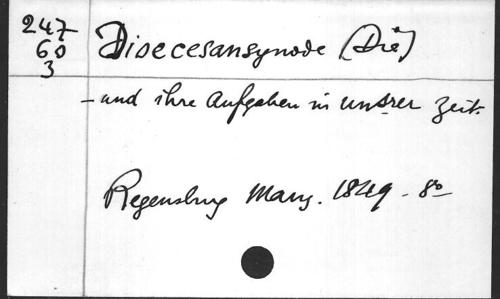 247
60
3
Dioecesansynode (Die)
- und ihre Aufgaben in unsrer Zeit.
Regensburg Manz. 1849 - 8°